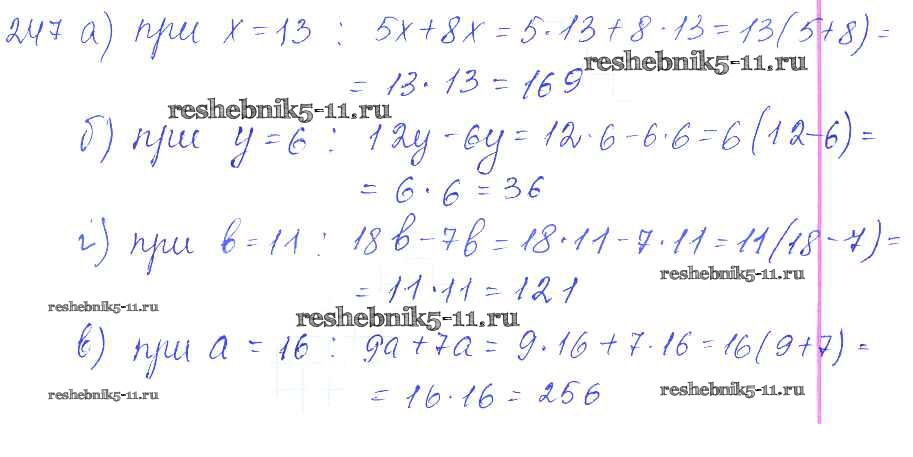 247 а) при x=13 : 5x+8x=5·13+8·13=13(5+8)=
reshebnik5-11.ru
=13·13=169
reshebnik5-11.ru
б) при y=6 : 12y-6y=12·6-6·6=6(12-6)=
=6·6=36
г) при b=11 : 18b-7b=18·11-7·11=11(18-7)=
reshebnik5-11.ru
=11·11=121
reshebnik5-11.ru
reshebnik5-11.ru
в) при a=16 : 9a+7a=9·16+7·16=16(9+7)=
reshebnik5-11.ru
=16·16=256
reshebnik5-11.ru